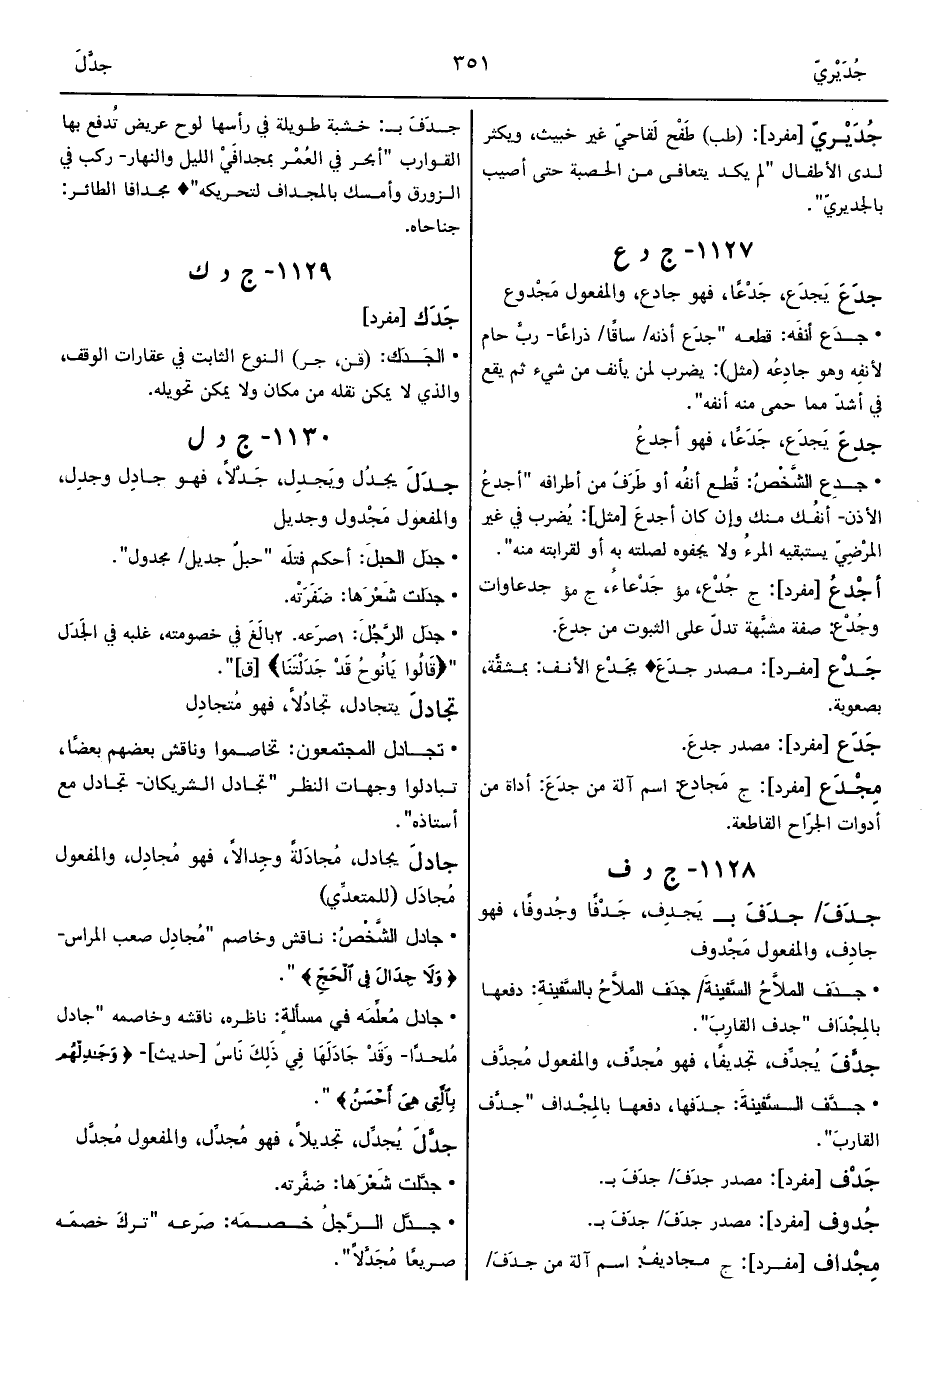 جُدَيْريّ
٣٥١
جدَّلَ
جُدَيْـريّ [مفرد]: (طب) طَفْح لَقاحيّ غير خبيث، ويكثر
لـدى الأطفـال "لم يكـد يتعافـى مـن الحَصبة حتى أصيب
بالجديريّ".
١١٢٧- ج د ع
جدَعَ يَجدَع، جَدْعًا، فهو جادع، والمفعول مَجْدوع
• جـدَع أنفَه: قطعـه "جدَع أذنه/ ساقًا/ ذراعًا- ربَّ حام
لأنفِه وهو جادِعُه (مثل): يضرب لمن يأنف من شيء ثم يقع
في أشدّ مما حمى منه أنفه".
جدِعَ يَجدَع، جَدَعًا، فهو أجدعُ
• جـدِع الشَّخْصُ: قُطـع أنفُه أو طَرَفٌ من أطرافه "أجدعُ
الأذن- أنفُـك منـك وإن كان أجدعَ [مثل]: يُضرب في غير
المرْضِيّ يستبقيه المرءُ ولا يجفوه لصلته به أو لقرابته منه".
أجْدعُ [مفرد]: ج جُدْع، مؤ جَدْعاءُ، ج مؤ جدعاوات
وجُدْع: صفة مشبَّهة تدلّ على الثبوت من جدِعَ.
جَـدْع [مفـرد]: مصـدر جـدَعَ♦ بجَدْع الأنـف: بمشقَّة،
بصعوبة.
جَدَع [مفرد]: مصدر جدِعَ.
مِجْـدَع [مفرد]: ج مَجادِع: اسم آلة من جدَعَ: أداة من
أدوات الجرّاح القاطعة.
١١٢٨- ج د ف
جـدَفَ/ جـدَفَ بـ يَجـدِف، جَـدْفًا وجُدوفًا، فهو
جادِف، والمفعول مَجْدوف
• جـدَف الملاَّحُ السَّفينةَ/ جدَف الملاَّحُ بالسَّفينةِ: دفعهـا
بالمِجْدَاف "جدف القاربَ".
جدَّفَ يُجدِّف، تجديفًا، فهو مُجدِّف، والمفعول مُجدَّف
• جـدَّف الـسَّفينةَ: جـدَفها، دفعهـا بالمِجْـداف "جـدَّف
القاربَ".
جَدْف [مفرد]: مصدر جدَفَ/ جدَفَ بـ.
جُدوف [مفرد]: مصدر جدَفَ/ جدَفَ بـ.
مِجْداف [مفـرد]: ج مـجاديفُ: اسـم آلـة من جـدَفَ/
جـدَفَ بـ: خشبة طويلة في رأسها لوح عريض تُدفع بها
القوارب "أبحر في الغَمْر بمجدافَيْ الليل والنهار- ركب في
الـزورق وأمسـك بالمجـداف لتحريكه"♦ مجـدافا الطائـر:
جناحاه.
١١٢٩- ج د ك
جَدَك [مفرد]
• الجَـدَك: (قـن، جـر) الـنوع الثابت في عقارات الوقف،
والذي لا يمكن نقله من مكان ولا يمكن تحويله.
١١٣٠- ج د ل
جـدَلَ يجدُل ويَجدِل، جَـدْلاً، فهـو جـادِل وجدِل،
والمفعول مَجْدول وجديل
• جدَل الحبلَ: أحكم فتلَه "حبلٌ جديل/ مجدول".
• جدَلت شَعْرَها: ضَفَرَتْه.
• جدَل الرَّجُلَ: ١صرَعه. ٢بالَغَ في خصومته، غلبه في الجَدَل
"﴿قَالُوا يَانُوحُ قَدْ جَدَلْتَنَا﴾ [ق]".
تجادلَ يتجادل، تجادُلاً، فهو مُتجادِل
• تجـادل المجتمعون: تخاصـموا وناقش بعضهم بعضًا،
تـبادلوا وجهـات النظـر "تجـادل الـشريكان- تجـادل مع
أستاذه".
جادلَ يجادل، مُجادَلةً وجِدالاً، فهو مُجادِل، والمفعول
مُجادَل (للمتعدِّي)
• جادل الشَّخْصُ: نـاقش وخاصم "مُجادِل صعب المراس-
﴿وَلَا جِدَالَ فِي ٱلْحَجِّ﴾".
• جادل مُعلِّمَه في مسألة: ناظره، ناقشه وخاصمه "جادل
مُلحدًا- وَقَدْ جَادَلَهَا فِي ذَلِكَ نَاسٌ [حديث]- ﴿وَجَٰدِلْهُم
بِٱلَّتِي هِيَ أَحْسَنُ﴾".
جدَّلَ يُجدِّل، تجديلاً، فهو مُجدِّل، والمفعول مُجدَّل
• جدَّلت شَعْرَها: ضفَّرته.
• جـدَّل الـرَّجلُ خـصـمَه: صَرعـه "تـركَ خصمَـه
صـريعًا مُجَدَّلاً".